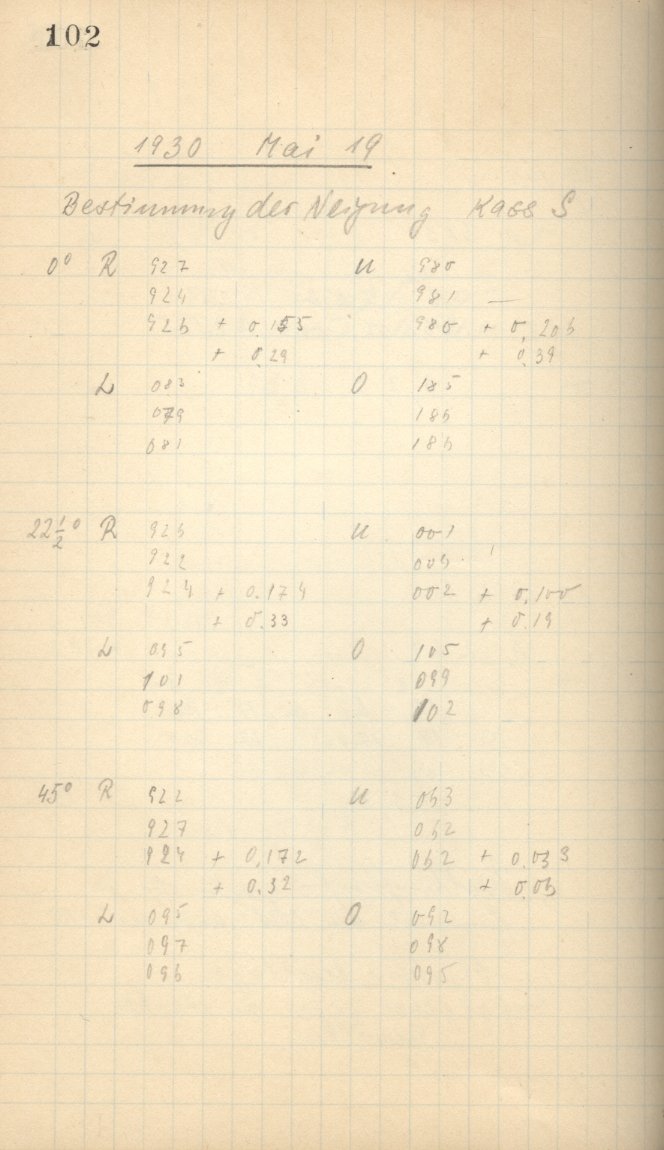 102
1930 Mai 19
Bestimmung der Neigung Kass S
0° R 927 U 980
924 981 —
926 + 0.155 980 + 0,206
+ 0.29 + 0.39
L 083 O 185
079 186
081 186
22½° R 926 U 001
922 003
924 + 0.174 002 + 0.100
+ 0.33 + 0.19
L 095 O 105
101 099
098 102
45° R 922 U 063
927 062
924 + 0,172 062 + 0.033
+ 0.32 + 0.06
L 095 O 092
097 098
096 095